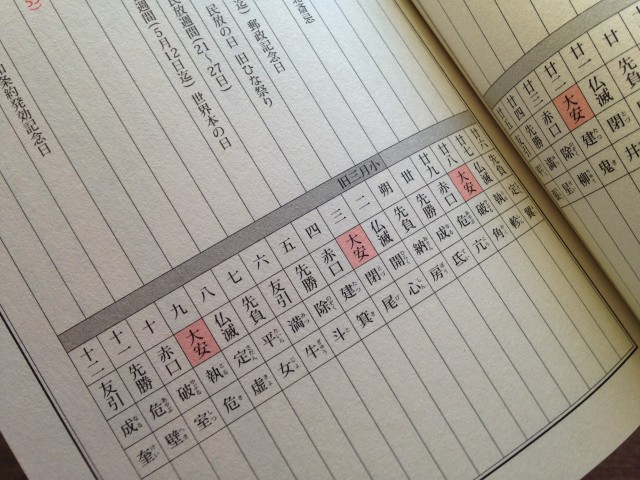 廿一 仏滅 閉 井
廿二 大安 建 鬼
廿三 赤口 除 柳
廿四 先勝 満 星
廿五 友引 平
旧三月小
廿六 先負 定 翼
廿七 仏滅 執 軫
廿八 大安 破 角
廿九 赤口 危 亢
卅 先勝 成 氐
朔 先負 納 房
二 仏滅 開 心
三 大安 閉 尾
四 赤口 建 箕
五 先勝 除 斗
六 友引 満 牛
七 先負 平 女
八 仏滅 定 虚
九 大安 執 危
十 赤口 破 室
十一 先勝 危 壁
十二 友引 成 奎
迄) 郵政記念日
民放の日 旧ひな祭り
週間(21〜27日)
週間(5月12日迄) 世界本の日
条約発効記念日